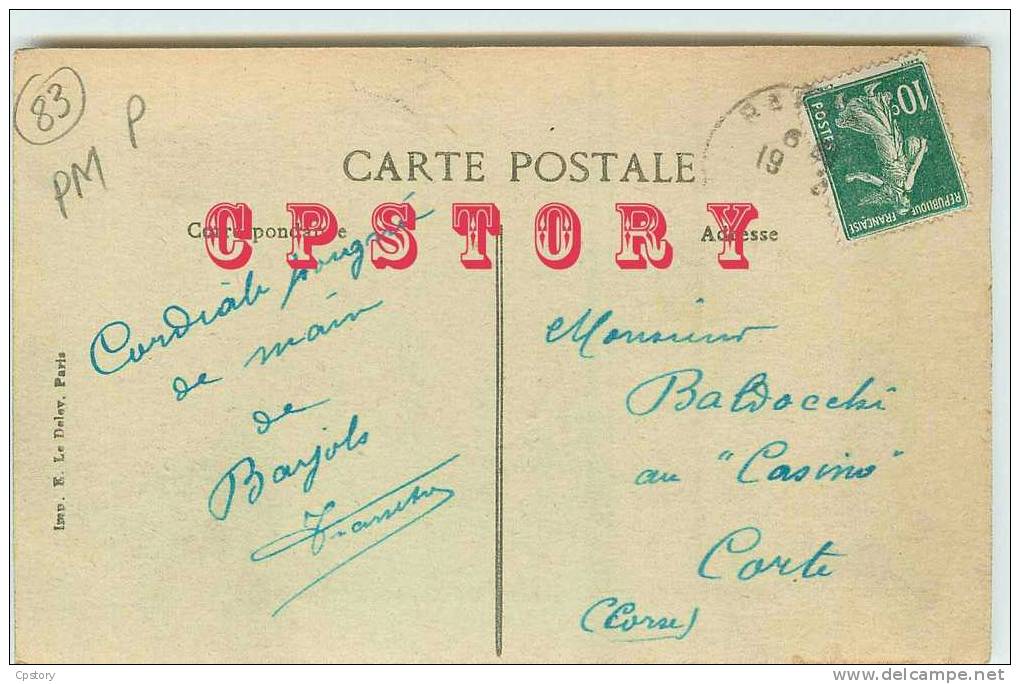 83
P
PM
CARTE POSTALE
Correspondance
Adresse
CPSTORY
10c
POSTES
REPUBLIQUE FRANÇAISE
Cordiale poignée
de main
de
Barjols
Monsieur
Baldocchi
au "Casino"
Corte
(Corse)
Imp. E. Le Deley, Paris
Cpstory
www.delcampe.net